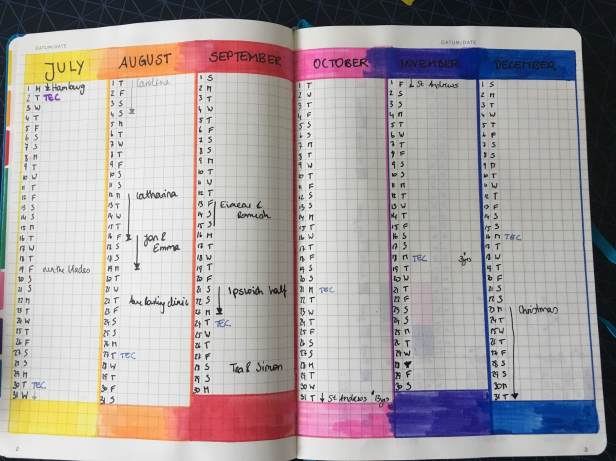 DATUM/DATE
JULY
1 M Hamburg
2 T TEC
3 W
4 T
5 F
6 S
7 S
8 M
9 T
10 W
11 T
12 F
13 S
14 S
15 M
16 T
17 W
18 T
19 F run the blades
20 S
21 S
22 M
23 T
24 W
25 T
26 F
27 S
28 S
29 M
30 T TEC
31 W
AUGUST
1 T Caroline
2 F
3 S
4 S
5 M
6 T
7 W
8 T
9 F
10 S
11 S
12 M Catharina
13 T
14 W
15 T
16 F Jon &
17 S Emma
18 S
19 M
20 T
21 W
22 T clinic
23 F
24 S
25 S
26 M
27 T TEC
28 W
29 T
30 F
31 S
SEPTEMBER
1 S
2 M
3 T
4 W
5 T
6 F
7 S
8 S
9 M
10 T
11 W
12 T
13 F Eimear &
14 S
15 S
16 M
17 T
18 W
19 T
20 F
21 S Ipswich half
22 S
23 M
24 T TEC
25 W
26 T
27 F
28 S Simon
29 S
30 M
2
OCTOBER
1 T
2 W
3 T
4 F
5 S
6 S
7 M
8 T
9 W
10 T
11 F
12 S
13 S
14 M
15 T
16 W
17 T
18 F
19 S
20 S
21 M TEC
22 T
23 W
24 T
25 F
26 S
27 S
28 M
29 T
30 W
31 T St Andrews
DATUM/DATE
NOVEMBER
1 F St Andrews
2 S
3 S
4 M
5 T
6 W
7 T
8 F
9 S
10 S
11 M
12 T
13 W
14 T
15 F
16 S
17 S
18 M TEC
19 T
20 W
21 T
22 F
23 S
24 S
25 M
26 T
27 W
28 T
29 F
30 S
DECEMBER
1 S
2 M
3 T
4 W
5 T
6 F
7 S
8 S
9 M
10 T
11 W
12 T
13 F
14 S
15 S
16 M TEC
17 T
18 W
19 T
20 F
21 S
22 S
23 M Christmas
24 T
25 W
26 T
27 F
28 S
29 S
30 M
31 T
3